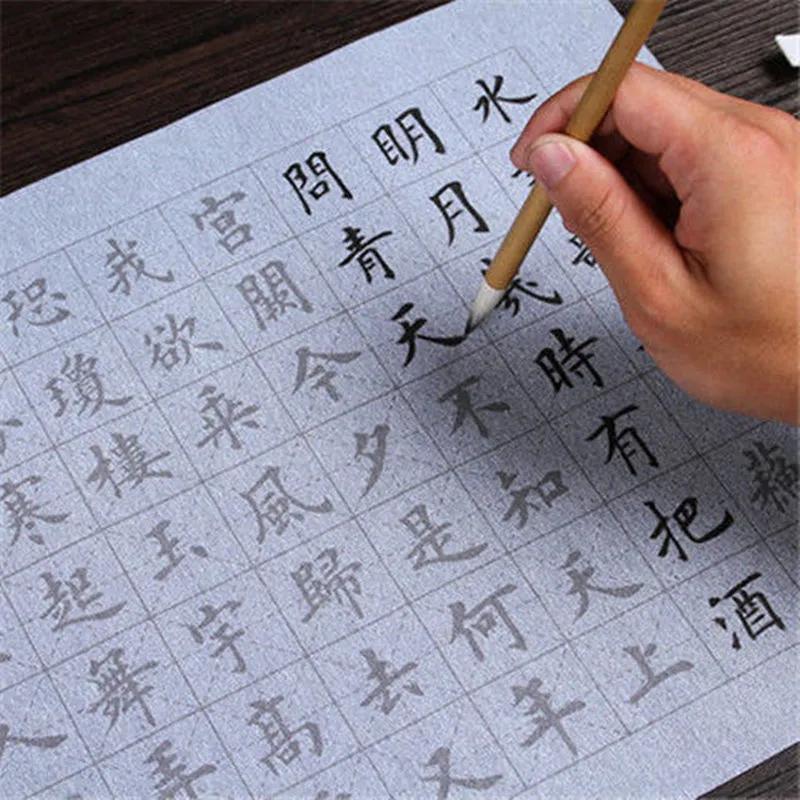 水蘇
明月幾時有把酒
問青天不知天上
宮闕今夕是何年
我欲乘風歸去又
恐瓊樓玉宇高
寒起舞弄
人